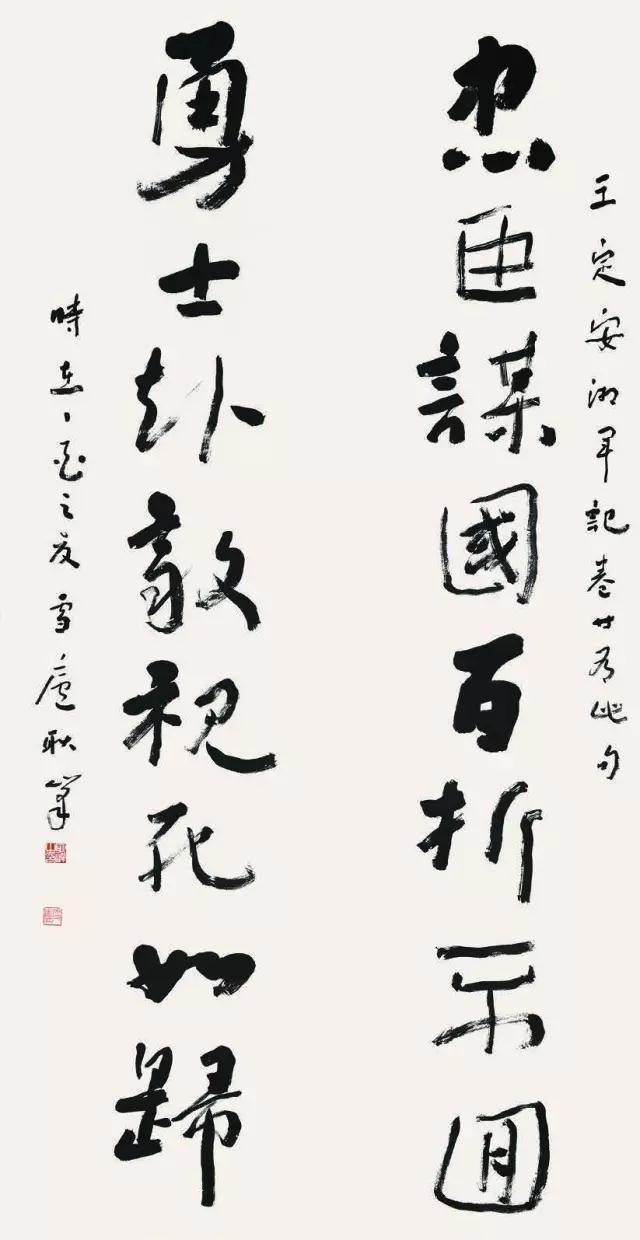 王定安湘軍記卷廿有此句
忠臣謀國百折不囘
勇士赴敵視死如歸
時在之夏雪廬耿